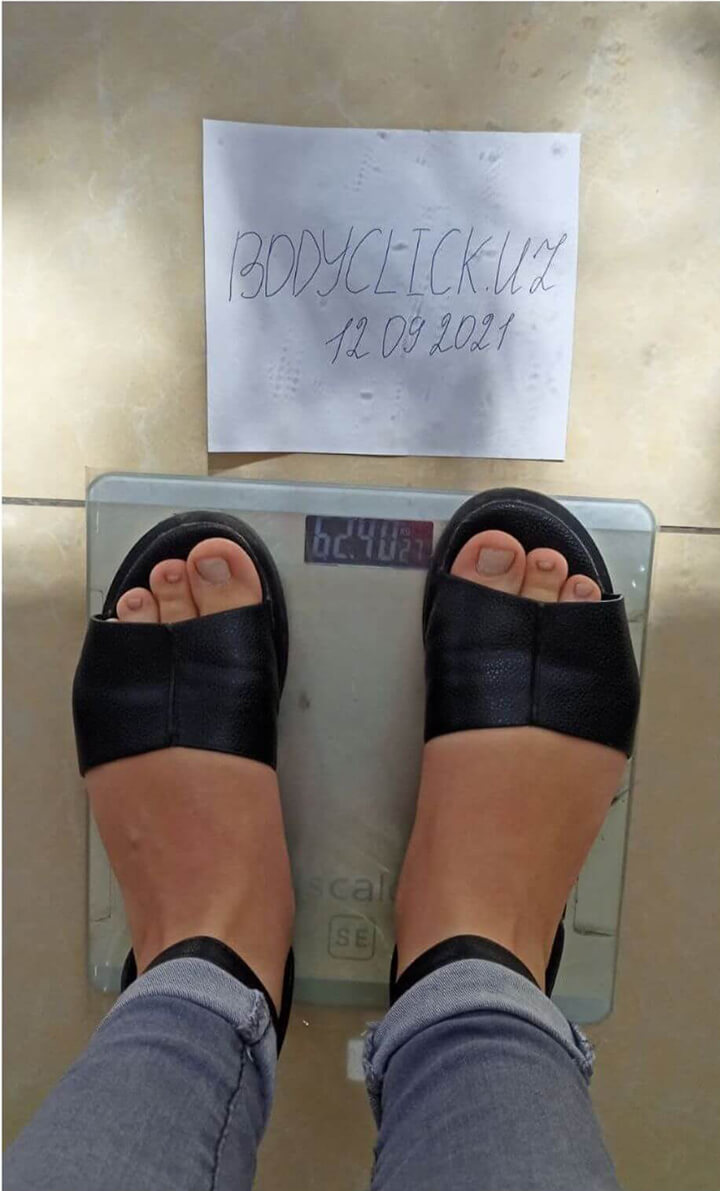 BODYCLICK.UZ
12 09 2021
62.40
scal
SE